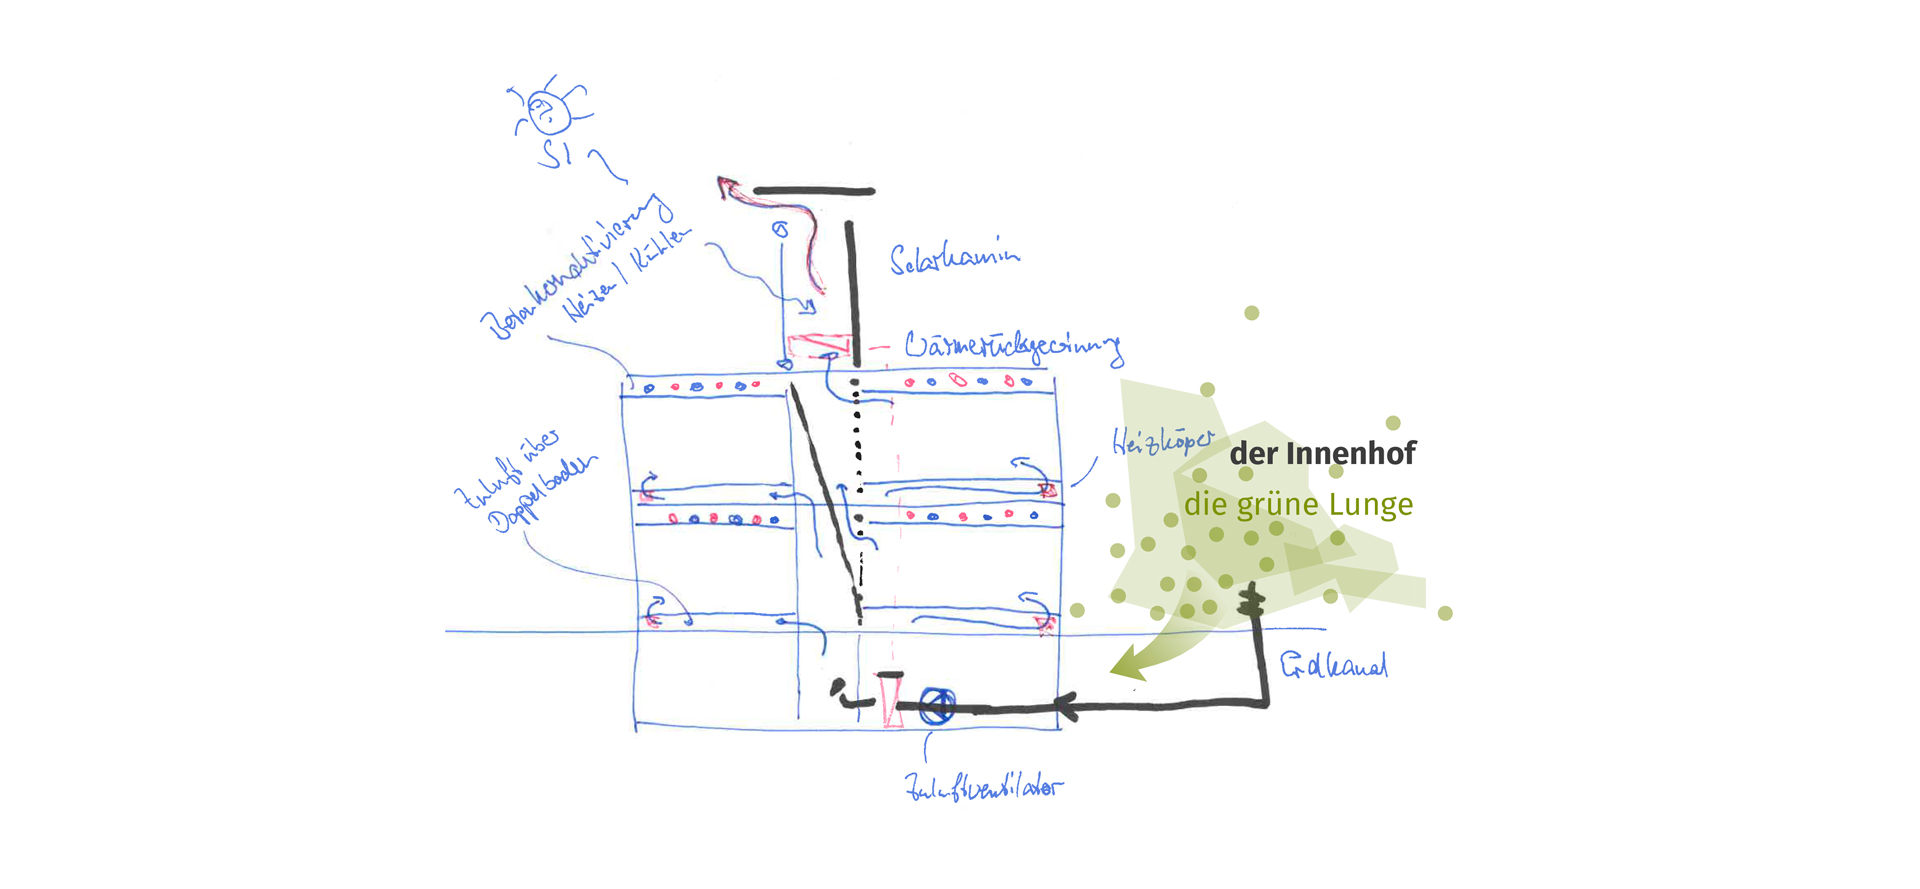 SI
Betonkernaktivierung
Heizen / Kühlen
Solarkamin
Wärmerückgewinnung
Zuluft über
Doppelboden
Heizköper
der Innenhof
die grüne Lunge
Erdkanal
Zuluftventilator